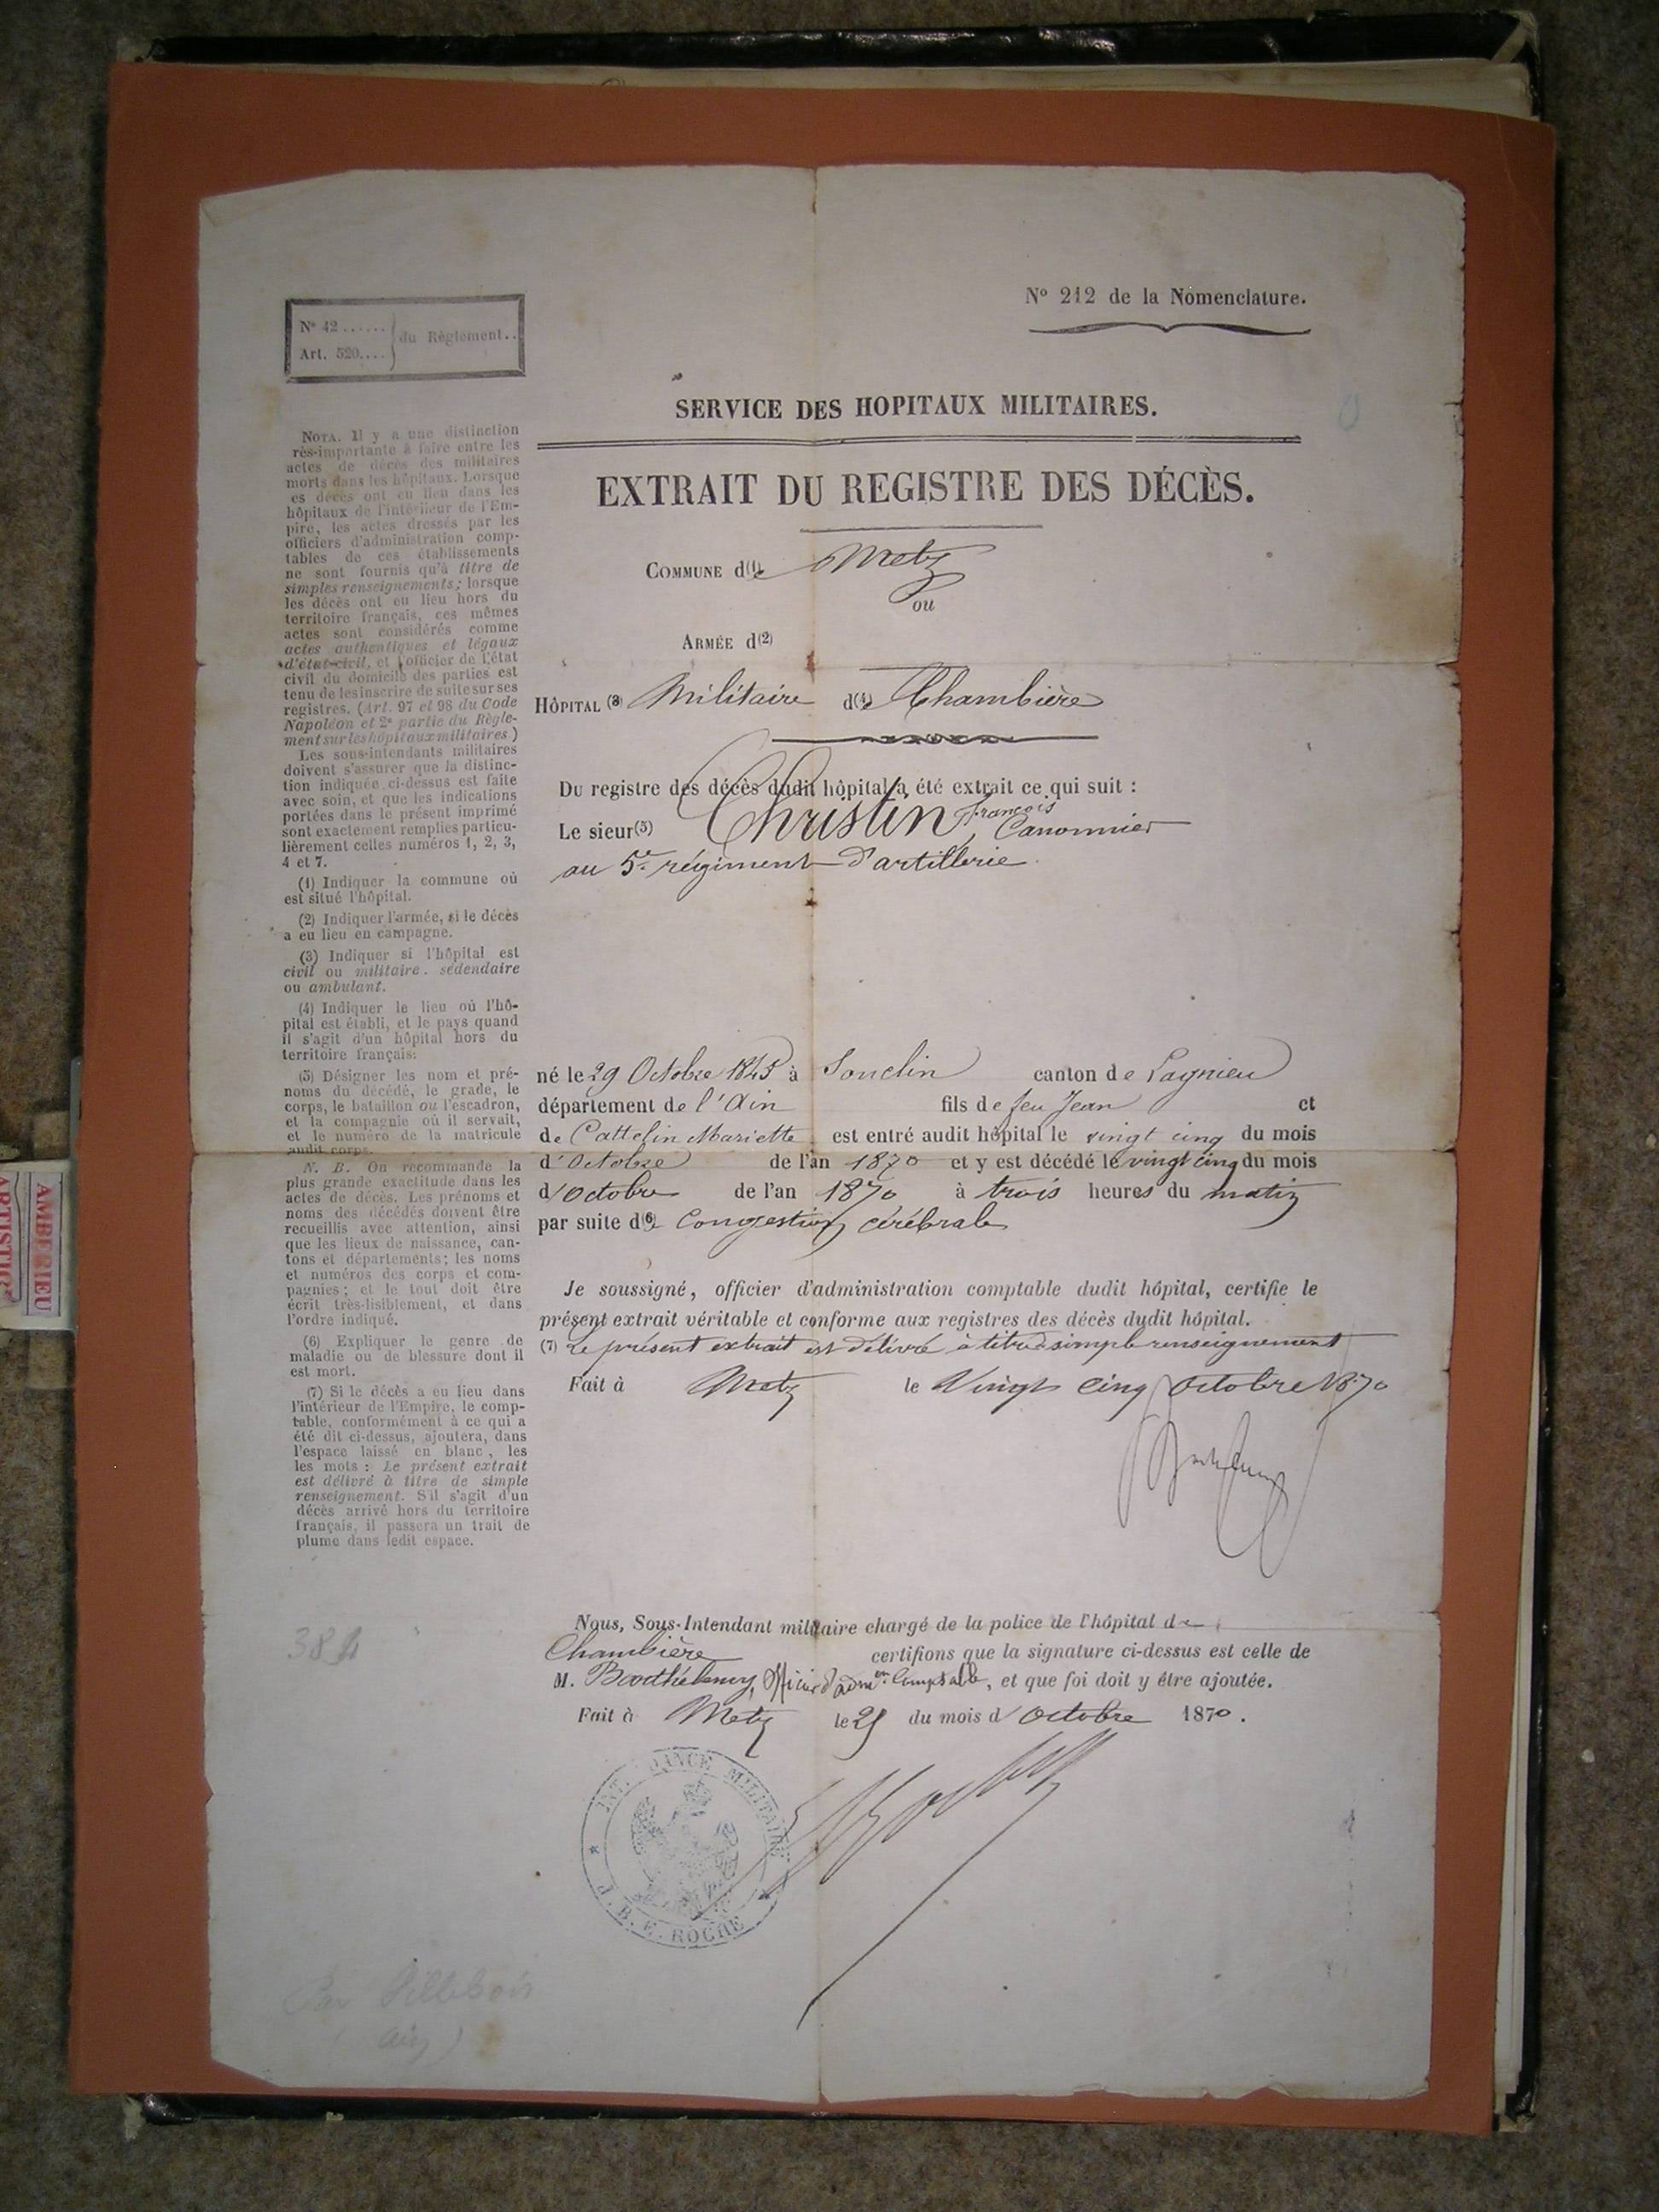 N° 212 de la Nomenclature.
N° 42 ......
Art. 520....
du Règlement..
SERVICE DES HOPITAUX MILITAIRES.
EXTRAIT DU REGISTRE DES DÉCÈS.
COMMUNE d(1)e Metz
ou
ARMÉE d(2)
HÔPITAL (3) Militaire d(4)e Chambière
Du registre des décès dudit hôpital a été extrait ce qui suit :
Le sieur(5) Christin, François Canonnier
au 5e régiment d'artillerie.
né le 29 Octobre 1845 à Souclin canton de Lagnieu
département de l'Ain fils de feu Jean et
de Cattelin Mariette est entré audit hôpital le vingt cinq du mois
d'Octobre de l'an 1870 et y est décédé le vingt cinq du mois
d'Octobre de l'an 1870 à trois heures du matin
par suite d(6)e Congestion cérébrale
Je soussigné, officier d'administration comptable dudit hôpital, certifie le
présent extrait véritable et conforme aux registres des décès dudit hôpital.
(7) Le présent extrait est délivré à titre de simple renseignement
Fait à Metz le Vingt cinq Octobre 1870
Nous, Sous-Intendant militaire chargé de la police de l'hôpital de
Chambière certifions que la signature ci-dessus est celle de
M. Barthélemy, Officier d'adm.on Comptable, et que foi doit y être ajoutée.
Fait à Metz le 25 du mois d'Octobre 1870.
INTENDANCE MILITAIRE
ROCHE
NOTA. Il y a une distinction
rès-importante à faire entre les
actes de décès des militaires
morts dans les hôpitaux. Lorsque
es décès ont eu lieu dans les
hôpitaux de l'intérieur de l'Em-
pire, les actes dressés par les
officiers d'administration comp-
tables de ces établissements
ne sont fournis qu'à titre de
simples renseignements; lorsque
les décès ont eu lieu hors du
territoire français, ces mêmes
actes sont considérés comme
actes authentiques et légaux
d'état-civil, et l'officier de l'état
civil du domicile des parties est
tenu de les inscrire de suite sur ses
registres. (Art. 97 et 98 du Code
Napoléon et 2e partie du Règle-
ment sur les hôpitaux militaires)
Les sous-intendants militaires
doivent s'assurer que la distinc-
tion indiquée ci-dessus est faite
avec soin, et que les indications
portées dans le présent imprimé
sont exactement remplies particu-
lièrement celles numéros 1, 2, 3,
4 et 7.
(1) Indiquer la commune où
est situé l'hôpital.
(2) Indiquer l'armée, si le décès
a eu lieu en campagne.
(3) Indiquer si l'hôpital est
civil ou militaire. sédendaire
ou ambulant.
(4) Indiquer le lieu où l'hô-
pital est établi, et le pays quand
il s'agit d'un hôpital hors du
territoire français:
(5) Désigner les nom et pré-
noms du décédé, le grade, le
corps, le bataillon ou l'escadron,
et la compagnie où il servait,
et le numéro de la matricule
audit corps.
N. B. On recommande la
plus grande exactitude dans les
actes de décès. Les prénoms et
noms des décédés doivent être
recueillis avec attention, ainsi
que les lieux de naissance, can-
tons et départements; les noms
et numéros des corps et com-
pagnies; et le tout doit être
écrit très-lisiblement, et dans
l'ordre indiqué.
(6) Expliquer le genre de
maladie ou de blessure dont il
est mort.
(7) Si le décès a eu lieu dans
l'intérieur de l'Empire, le comp-
table, conformément à ce qui a
été dit ci-dessus, ajoutera, dans
l'espace laissé en blanc, les
les mots : Le présent extrait
est délivré à titre de simple
renseignement. S'il s'agit d'un
décès arrivé hors du territoire
français, il passera un trait de
plume dans ledit espace.
Par Villebois
(Ain)
AMBERIEU